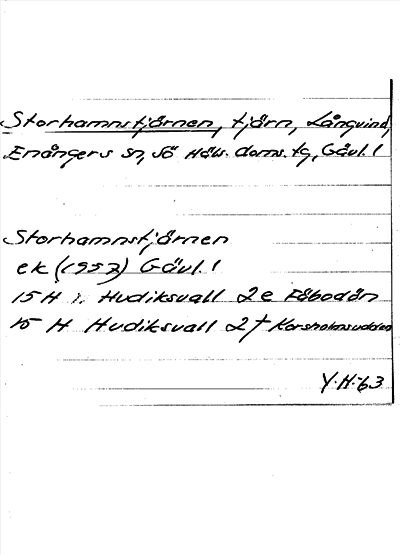 Storhamnstjärnen, tjärn, Långvind,
Enångers sn, Sö Häls. doms. tg, Gävl. l
Storhamnstjärnen
ek (1957) Gävl. l
15 H Hudiksvall 2e Fäbodön
15 H Hudiksvall 2f Korsholmsudden
Y.H-63